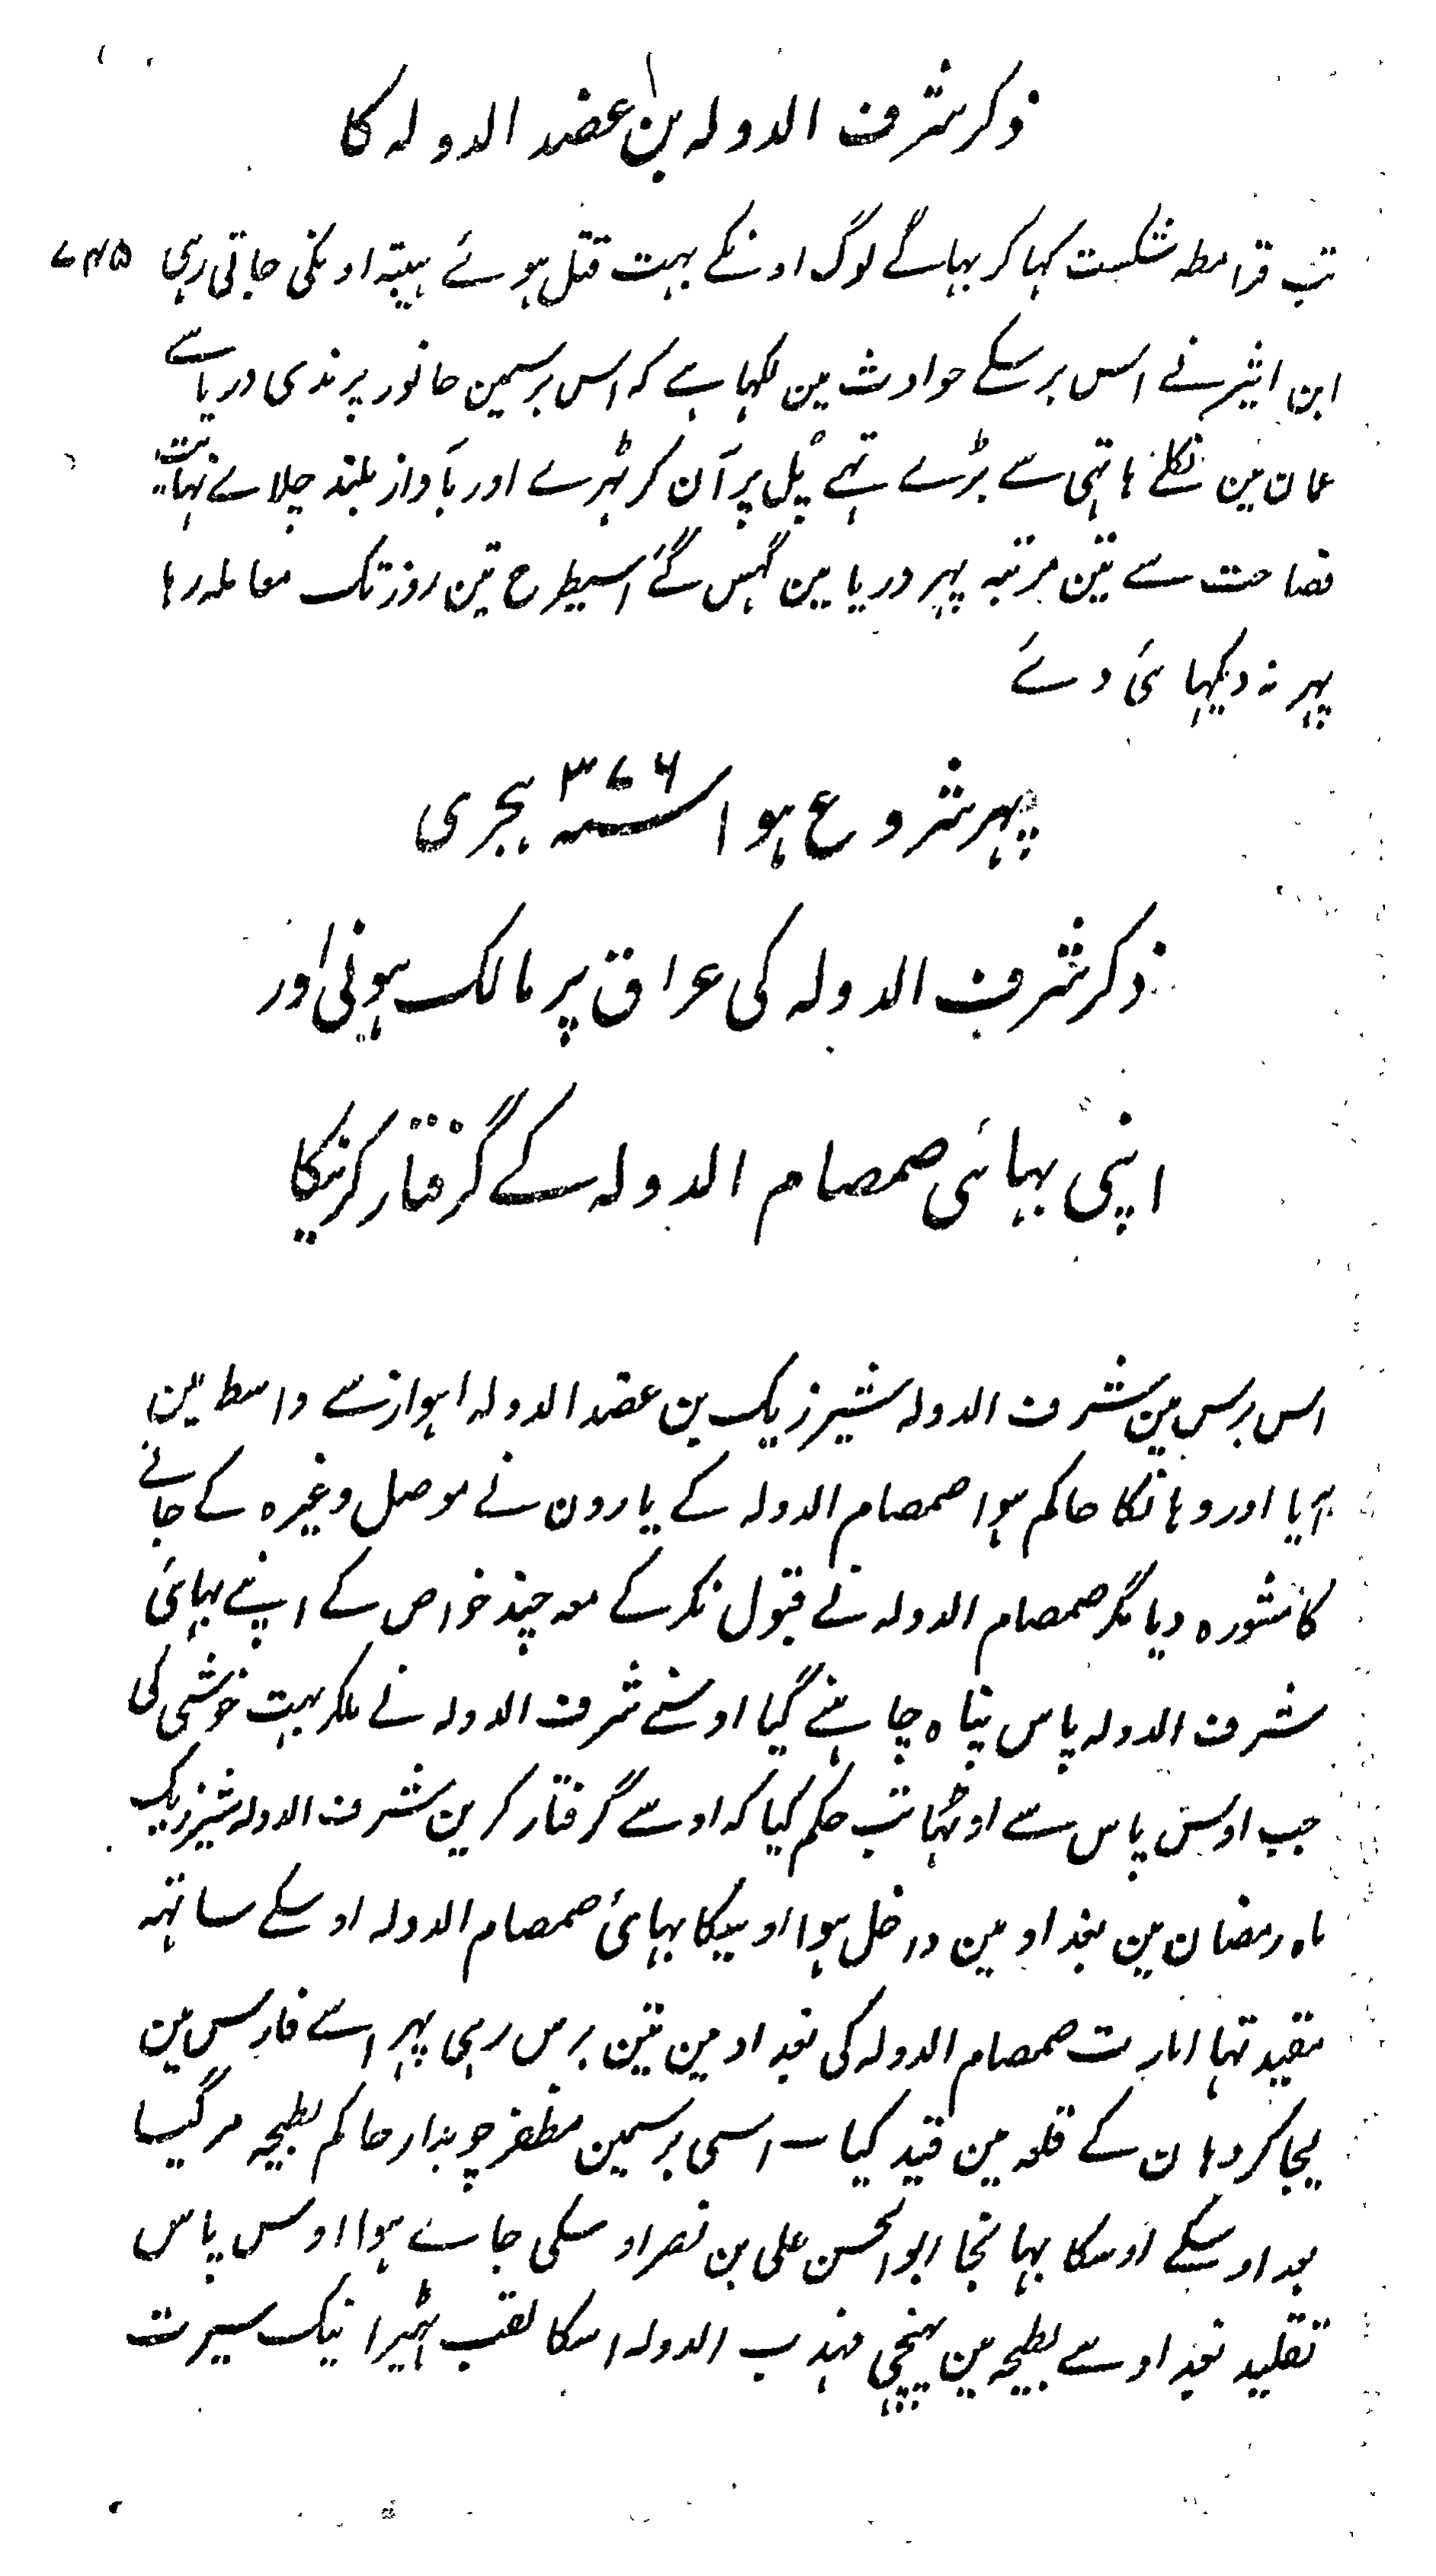 ذکر شرف الدولہ بن عضد الدولہ کا
تب قرامطہ شکست کہا کر بہاگے لوگ اونکے بہت قتل ہوئے ہیبتہ اونکی جاتی رہی
ابن اثیر نے اس برسکے حوادث مین لکہا ہے کہ اس برسمین جانور پرندی دریاے
عمان مین نکلے ہاتہی سے بڑے تہے پُل پر آن کر ٹہرے اور بآواز بلند چلاے نہایت
فصاحت سے تین مرتبہ پہر دریا مین گہس گئے اسیطرح تین روز تک معاملہ رہا
پہر نہ دیکہائی دئے
پہر شروع ہوا سنہ ۳۷۶ ہجری
ذکر شرف الدولہ کی عراق پر مالک ہونی اور
اپنی بہائی صمصام الدولہ کے گرفتار کرنیکا
اس برس مین شرف الدولہ شیرزیک بن عضد الدولہ اہواز سے واسط مین
آیا اور وہانکا حاکم ہوا صمصام الدولہ کے یارون نے موصل وغیرہ کے جانے
کا مشورہ دیا مگر صمصام الدولہ نے قبول نکر کے معہ چند خواص کے اپنے بہائی
شرف الدولہ پاس پناہ چاہنے گیا اوسنے شرف الدولہ نے ملکر بہت خوشی کی
جب اوس پاس سے اوٹہا تب حکم کیا کہ اوسے گرفتار کرین شرف الدولہ شیرزیک
ماہ رمضان مین بغداد مین داخل ہوا اوسیکا بہائی صمصام الدولہ اوسکے ساتہہ
مقید تہا امارت صمصام الدولہ کی بغداد مین تین برس رہی پہر اسے فارس مین
لیجا کر وہان کے قلعہ مین قید کیا ۔ اسی برسمین مظفر چوبدار حاکم بطیحہ مر گیا
بعد اوسکے اوسکا بہانجا ابو الحسن علی بن نصر اوسکی جاے ہوا اوس پاس
تقلید بغداد سے بطیحہ مین پہنچی مہذب الدولہ اسکا لقب ٹہیرا نیک سیرت